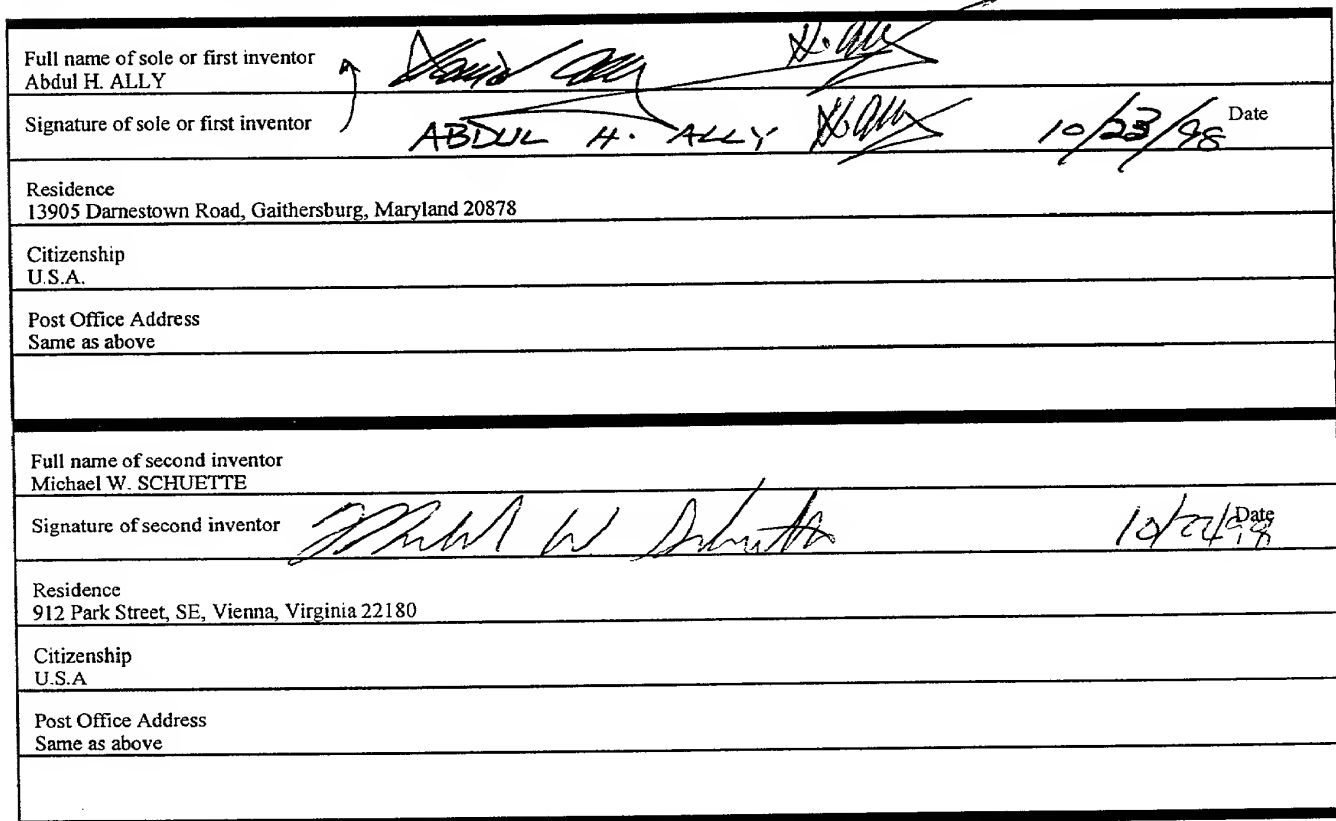 Full name of sole or first inventor
Abdul H. ALLY
Signature of sole or first inventor ABDUL H. ALLY 10/23/98 Date
Residence
13905 Darnestown Road, Gaithersburg, Maryland 20878
Citizenship
U.S.A.
Post Office Address
Same as above
Full name of second inventor
Michael W. SCHUETTE
Signature of second inventor Michael W Schuette Date
Residence
912 Park Street, SE, Vienna, Virginia 22180
Citizenship
U.S.A
Post Office Address
Same as above